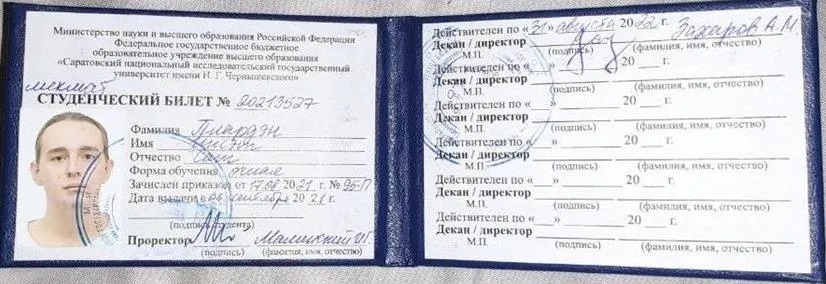 Министерство науки и высшего образования Российской Федерации
Федеральное государственное бюджетное
образовательное учреждение высшего образования
«Саратовский национальный исследовательский государственный
университет имени Н. Г. Чернышевского»
мехмат
СТУДЕНЧЕСКИЙ БИЛЕТ № 20213527
Фамилия
Имя
Отчество
Форма обучения очная
Зачислен приказом от 17.08 2021 г. № 95-П
Дата выдачи «06» сентября 2021 г.
(подпись студента)
Проректор
(подпись) (фамилия, имя, отчество)
Действителен по «31» августа 2022 г.
Декан / директор Захаров А.М
М.П. (подпись) (фамилия, имя, отчество)
Действителен по « » 20 г.
Декан / директор
М.П. (подпись) (фамилия, имя, отчество)
Действителен по « » 20 г.
Декан / директор
М.П. (подпись) (фамилия, имя, отчество)
Действителен по « » 20 г.
Декан / директор
М.П. (подпись) (фамилия, имя, отчество)
Действителен по « » 20 г.
Декан / директор
М.П. (подпись) (фамилия, имя, отчество)
Действителен по « » 20 г.
Декан / директор
М.П. (подпись) (фамилия, имя, отчество)